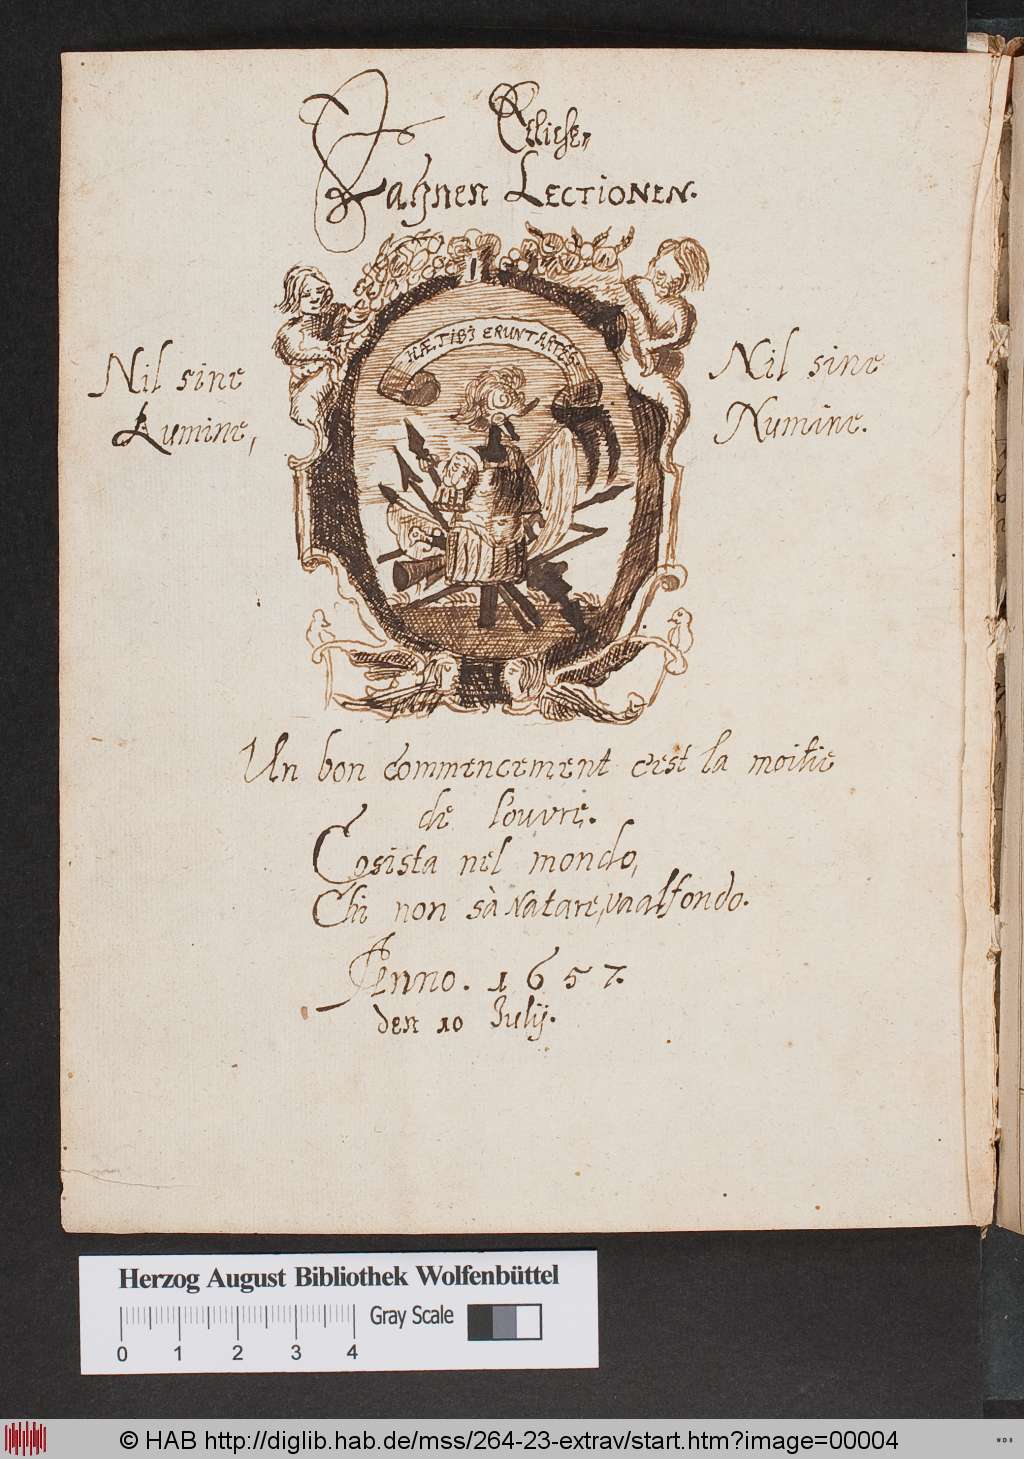 Etliche,
Fahnen LECTIONEN.
HÆ TIBI ERUNT ARTES
Nil sine
Lumine,
Nil sine
Numine.
Un bon commencement c'est la moitie
de l'ouvre.
Cosista nel mondo,
Chi non sà Natare, va al fondo.
Anno. 1657.
den 10 Julÿ.
Herzog August Bibliothek Wolfenbüttel
Gray Scale
0 1 2 3 4
© HAB http://diglib.hab.de/mss/264-23-extrav/start.htm?image=00004